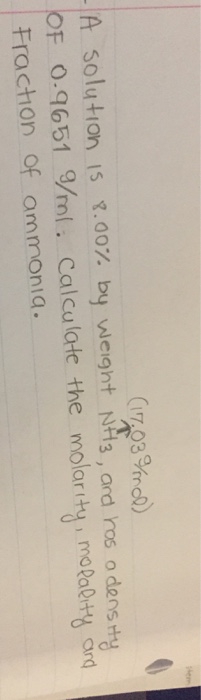 (17.03 g/mol)
- A solution is 8.00% by weight NH3, and has a density
OF 0.9651 g/ml. Calculate the molarity, molality and
Fraction of ammonia.